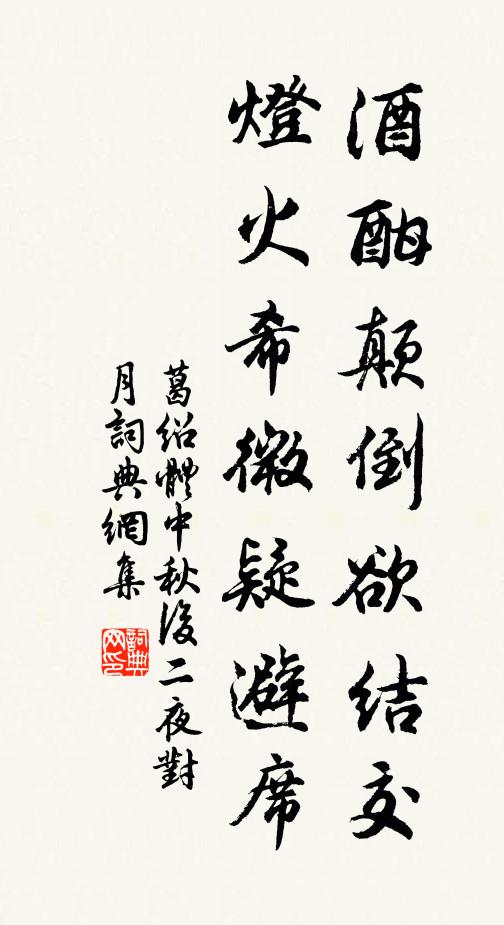 酒酣顛倒欲結交
燈火希微疑避席
葛紹體中秋後二夜對
月詞典網集
詞典
网印